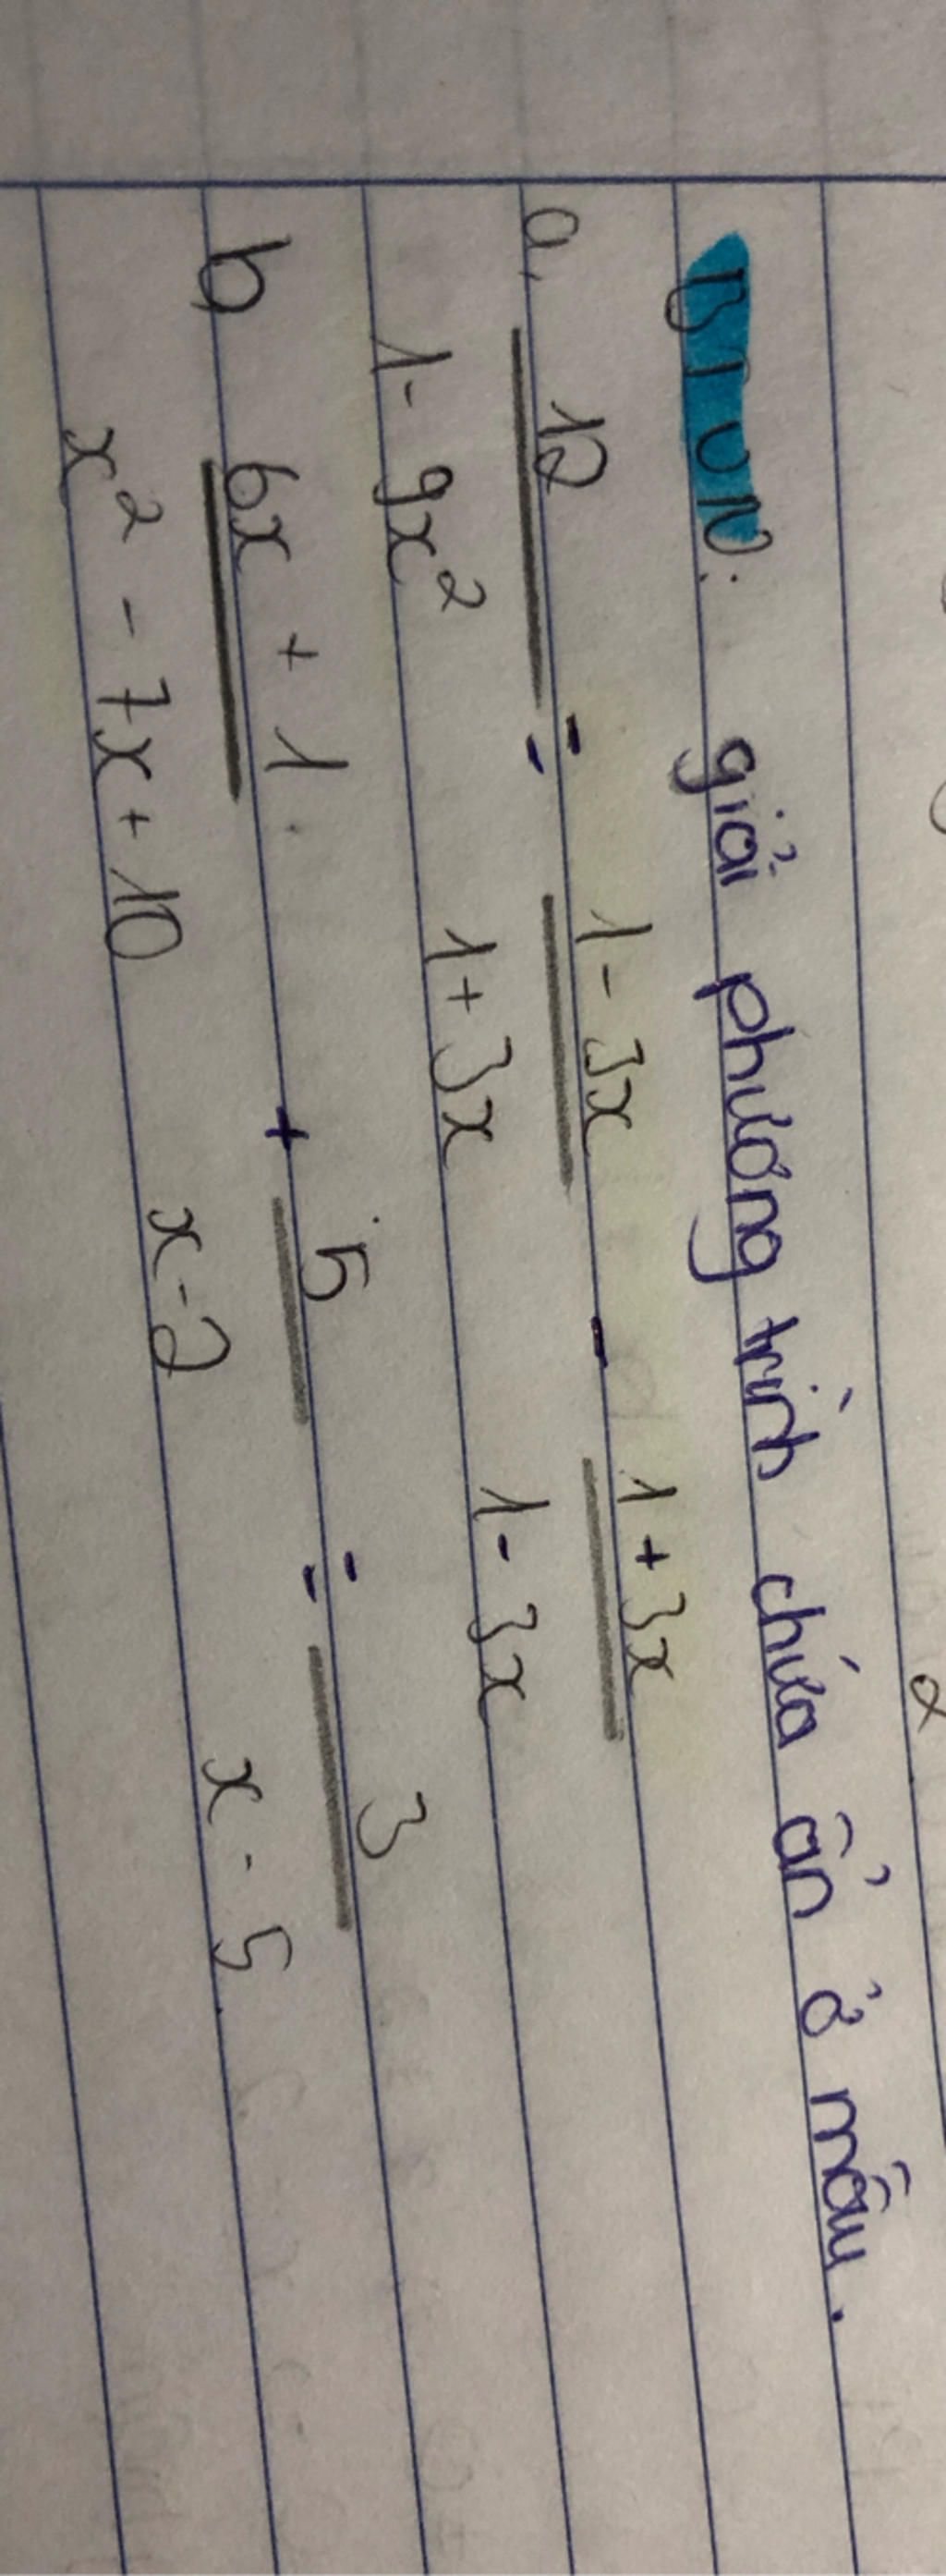 BTVN: giải phương trình chứa ẩn ở mẫu.
a, 12 / 1 - 9x² = 1 - 3x / 1 + 3x - 1 + 3x / 1 - 3x
b, 6x + 1 / x² - 7x + 10 + 5 / x - 2 = 3 / x - 5